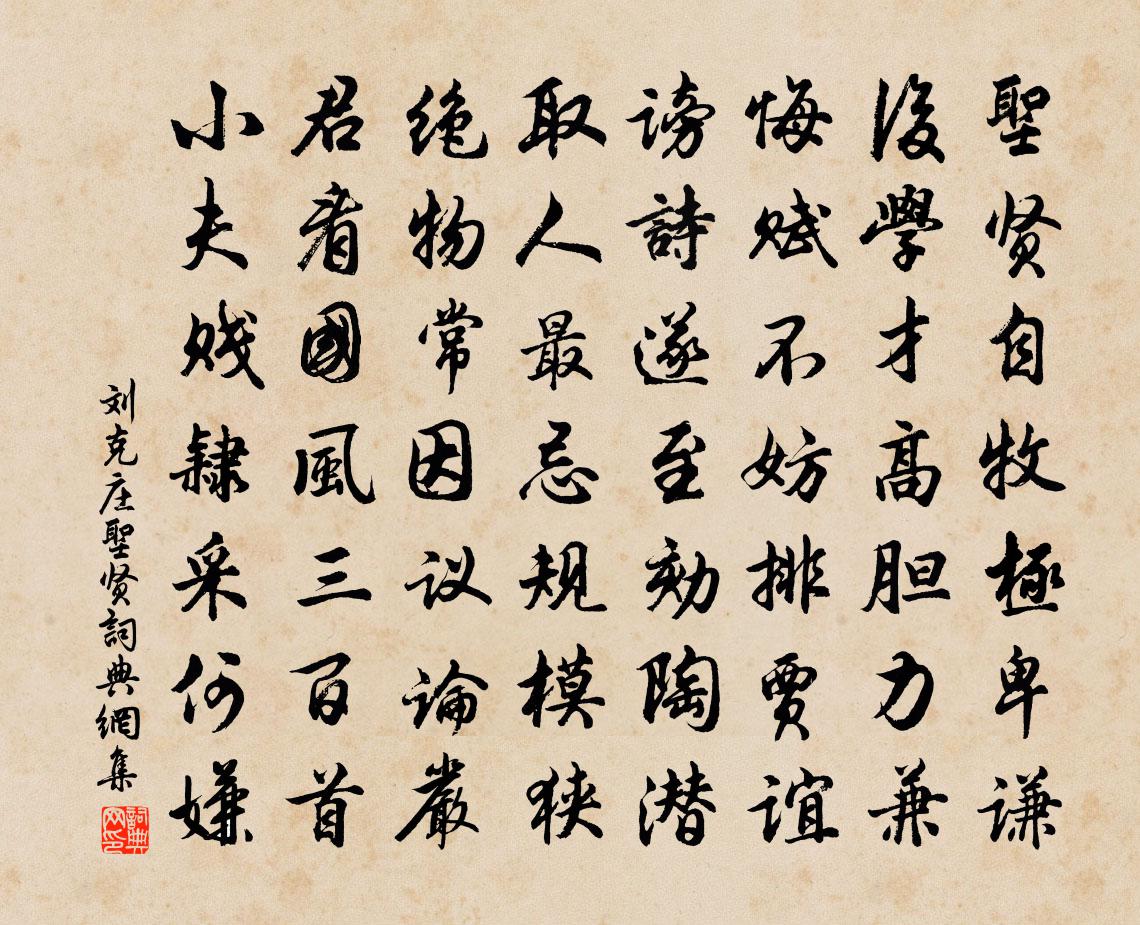 聖贤自牧極卑谦
後學才高胆力兼
悔赋不妨排贾谊
谤詩遂至劾陶潜
取人最忌規模狹
绝物常因议論嚴
君看國風三百首
小夫贱隸采何嫌
刘克庄聖贤詞典網集
詞典网印